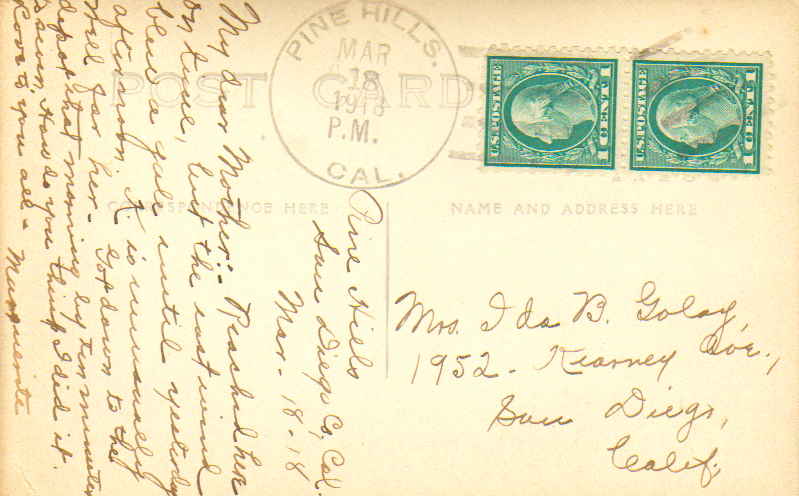 POST CARD
PINE HILLS.
MAR
18
1918
P.M.
CAL.
U.S. POSTAGE
1 CENT 1
U.S. POSTAGE
1 CENT 1
CORRESPONDENCE HERE
NAME AND ADDRESS HERE
Pine Hills
San Diego Co. Cal.
Mar. 18-18
My dear Mother:- Reached here
on time, but the east wind
blew a gale until yesterday
afternoon. K is unusually
well for her - Got down to the
depot that morning by ten minutes
to seven, How do you think I did it.
Love to you all - Marguerite
Mrs. Ida B. Golay,
1952 - Kearney Ave.,
San Diego,
Calif.